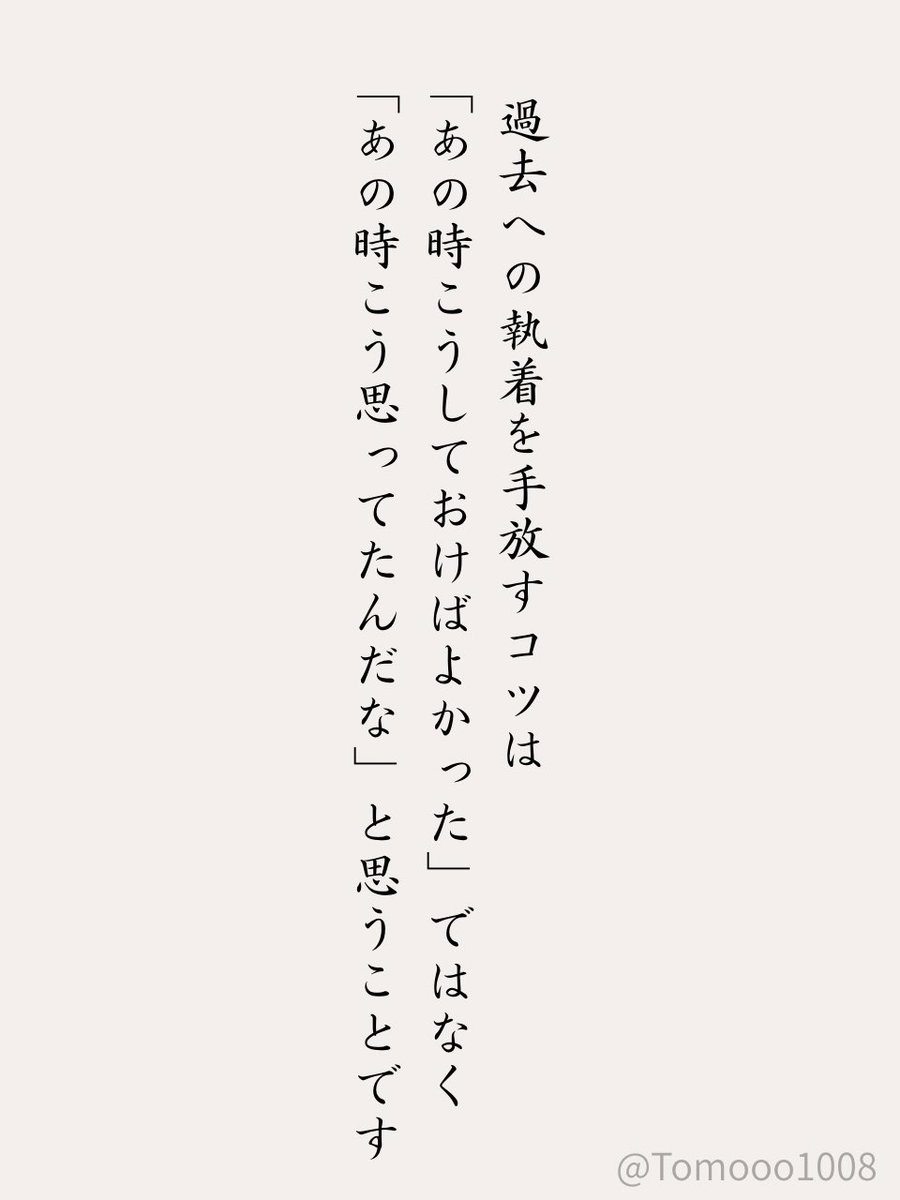 過去への執着を手放すコツは
「あの時こうしておけばよかった」ではなく
「あの時こう思ってたんだな」と思うことです
@Tomooo1008